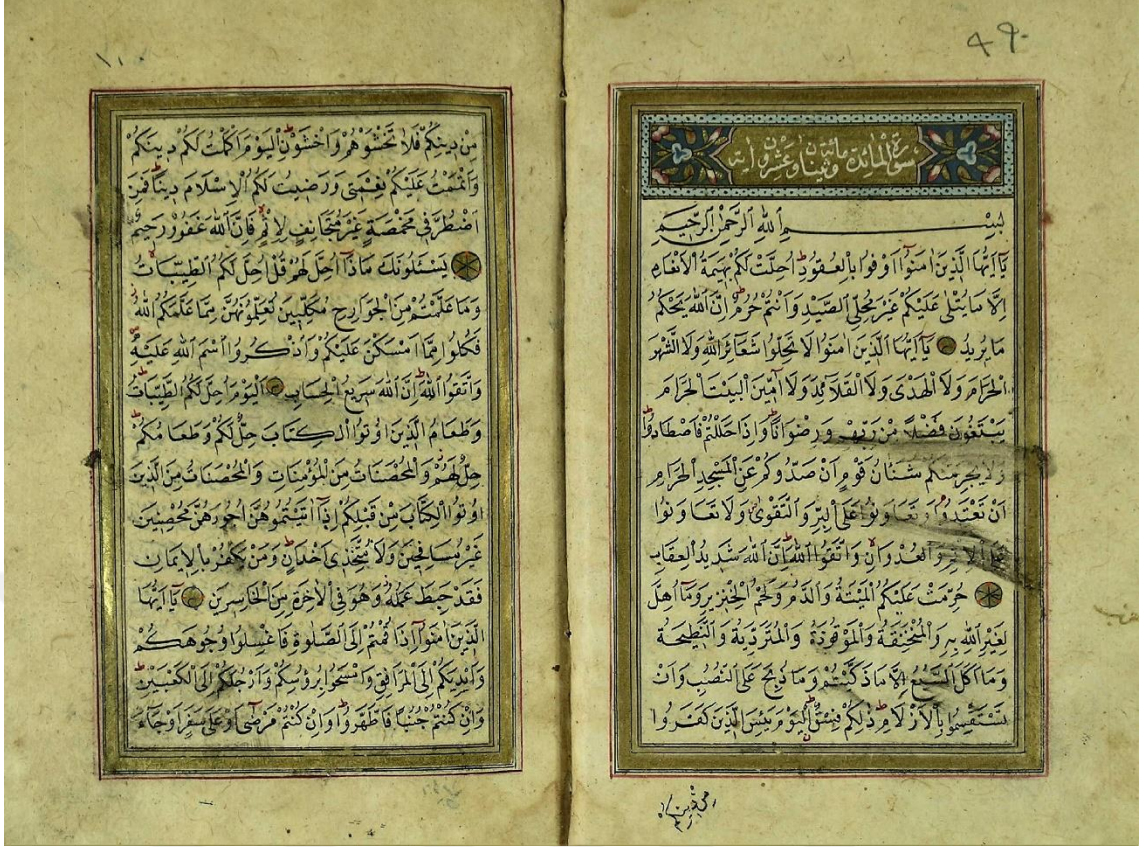 سورة المائدة مائتان وعشرون اية
بِسْمِ اللهِ الرَّحْمٰنِ الرَّحِيمِ
يَآ اَيُّهَا الَّذِينَ اٰمَنُوٓا اَوْفُوا بِالْعُقُودِ اُحِلَّتْ لَكُمْ بَهِيمَةُ الْاَنْعَامِ
اِلَّا مَا يُتْلٰى عَلَيْكُمْ غَيْرَ مُحِلِّى الصَّيْدِ وَاَنْتُمْ حُرُمٌ اِنَّ اللهَ يَحْكُمُ
مَا يُرِيدُ يَآ اَيُّهَا الَّذِينَ اٰمَنُوا لَا تُحِلُّوا شَعَآئِرَ اللهِ وَلَا الشَّهْرَ
الْحَرَامَ وَلَا الْهَدْىَ وَلَا الْقَلَآئِدَ وَلَآ اٰمِّينَ الْبَيْتَ الْحَرَامَ
يَبْتَغُونَ فَضْلًا مِنْ رَبِّهِمْ وَرِضْوَانًا وَاِذَا حَلَلْتُمْ فَاصْطَادُوا
وَلَا يَجْرِمَنَّكُمْ شَنَاٰنُ قَوْمٍ اَنْ صَدُّوكُمْ عَنِ الْمَسْجِدِ الْحَرَامِ
اَنْ تَعْتَدُوا وَتَعَاوَنُوا عَلَى الْبِرِّ وَالتَّقْوٰى وَلَا تَعَاوَنُوا
عَلَى الْاِثْمِ وَالْعُدْوَانِ وَاتَّقُوا اللهَ اِنَّ اللهَ شَدِيدُ الْعِقَابِ
حُرِّمَتْ عَلَيْكُمُ الْمَيْتَةُ وَالدَّمُ وَلَحْمُ الْخِنْزِيرِ وَمَآ اُهِلَّ
لِغَيْرِ اللهِ بِهِ وَالْمُنْخَنِقَةُ وَالْمَوْقُوذَةُ وَالْمُتَرَدِّيَةُ وَالنَّطِيحَةُ
وَمَآ اَكَلَ السَّبُعُ اِلَّا مَا ذَكَّيْتُمْ وَمَا ذُبِحَ عَلَى النُّصُبِ وَاَنْ
تَسْتَقْسِمُوا بِالْاَزْلَامِ ذٰلِكُمْ فِسْقٌ اَلْيَوْمَ يَئِسَ الَّذِينَ كَفَرُوا
من دينكم
١١٠
مِنْ دِينِكُمْ فَلَا تَخْشَوْهُمْ وَاخْشَوْنِ اَلْيَوْمَ اَكْمَلْتُ لَكُمْ دِينَكُمْ
وَاَتْمَمْتُ عَلَيْكُمْ نِعْمَتِى وَرَضِيتُ لَكُمُ الْاِسْلَامَ دِينًا فَمَنِ
اضْطُرَّ فِى مَخْمَصَةٍ غَيْرَ مُتَجَانِفٍ لِاِثْمٍ فَاِنَّ اللهَ غَفُورٌ رَحِيمٌ
يَسْئَلُونَكَ مَاذَآ اُحِلَّ لَهُمْ قُلْ اُحِلَّ لَكُمُ الطَّيِّبَاتُ
وَمَا عَلَّمْتُمْ مِنَ الْجَوَارِحِ مُكَلِّبِينَ تُعَلِّمُونَهُنَّ مِمَّا عَلَّمَكُمُ اللهُ
فَكُلُوا مِمَّآ اَمْسَكْنَ عَلَيْكُمْ وَاذْكُرُوا اسْمَ اللهِ عَلَيْهِ
وَاتَّقُوا اللهَ اِنَّ اللهَ سَرِيعُ الْحِسَابِ اَلْيَوْمَ اُحِلَّ لَكُمُ الطَّيِّبَاتُ
وَطَعَامُ الَّذِينَ اُوتُوا الْكِتَابَ حِلٌّ لَكُمْ وَطَعَامُكُمْ
حِلٌّ لَهُمْ وَالْمُحْصَنَاتُ مِنَ الْمُؤْمِنَاتِ وَالْمُحْصَنَاتُ مِنَ الَّذِينَ
اُوتُوا الْكِتَابَ مِنْ قَبْلِكُمْ اِذَآ اٰتَيْتُمُوهُنَّ اُجُورَهُنَّ مُحْصِنِينَ
غَيْرَ مُسَافِحِينَ وَلَا مُتَّخِذِىٓ اَخْدَانٍ وَمَنْ يَكْفُرْ بِالْاِيمَانِ
فَقَدْ حَبِطَ عَمَلُهُ وَهُوَ فِى الْاٰخِرَةِ مِنَ الْخَاسِرِينَ يَآ اَيُّهَا
الَّذِينَ اٰمَنُوٓا اِذَا قُمْتُمْ اِلَى الصَّلٰوةِ فَاغْسِلُوا وُجُوهَكُمْ
وَاَيْدِيَكُمْ اِلَى الْمَرَافِقِ وَامْسَحُوا بِرُؤُسِكُمْ وَاَرْجُلَكُمْ اِلَى الْكَعْبَيْنِ
وَاِنْ كُنْتُمْ جُنُبًا فَاطَّهَّرُوا وَاِنْ كُنْتُمْ مَرْضٰىٓ اَوْ عَلٰى سَفَرٍ اَوْ جَآءَ